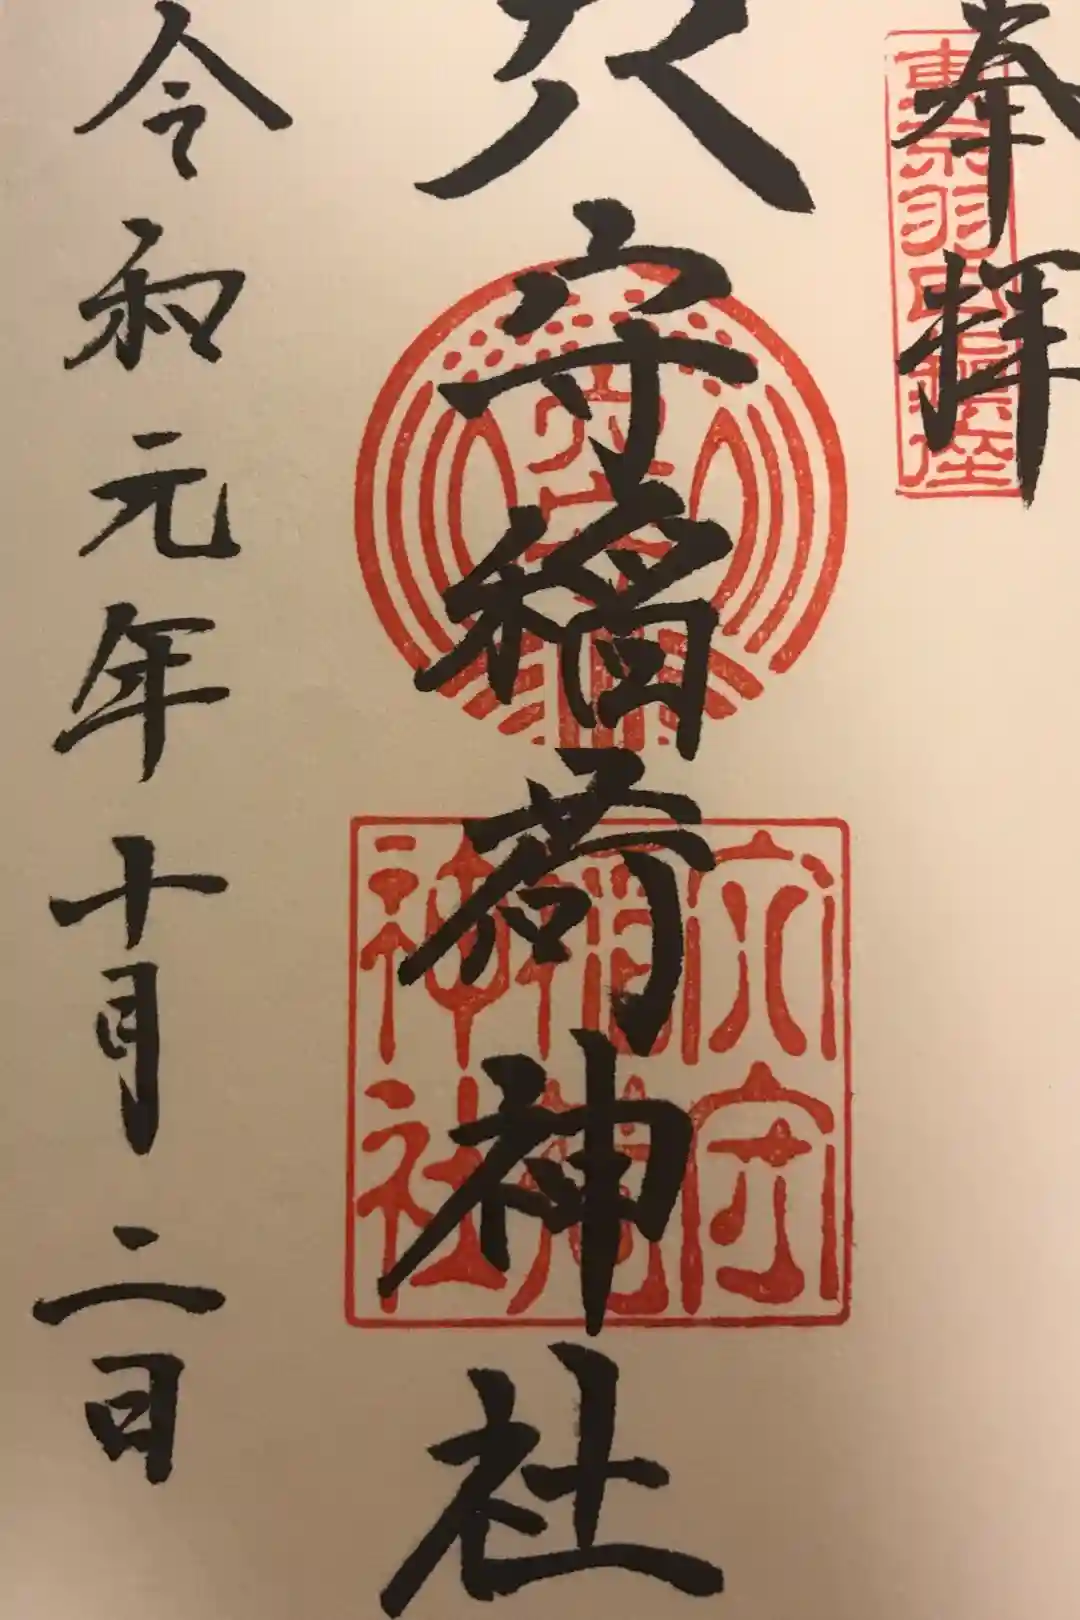 奉拝
東京羽田鎮座
穴守稲荷神社
穴守
穴守
稲荷
神社
令和元年十月二日